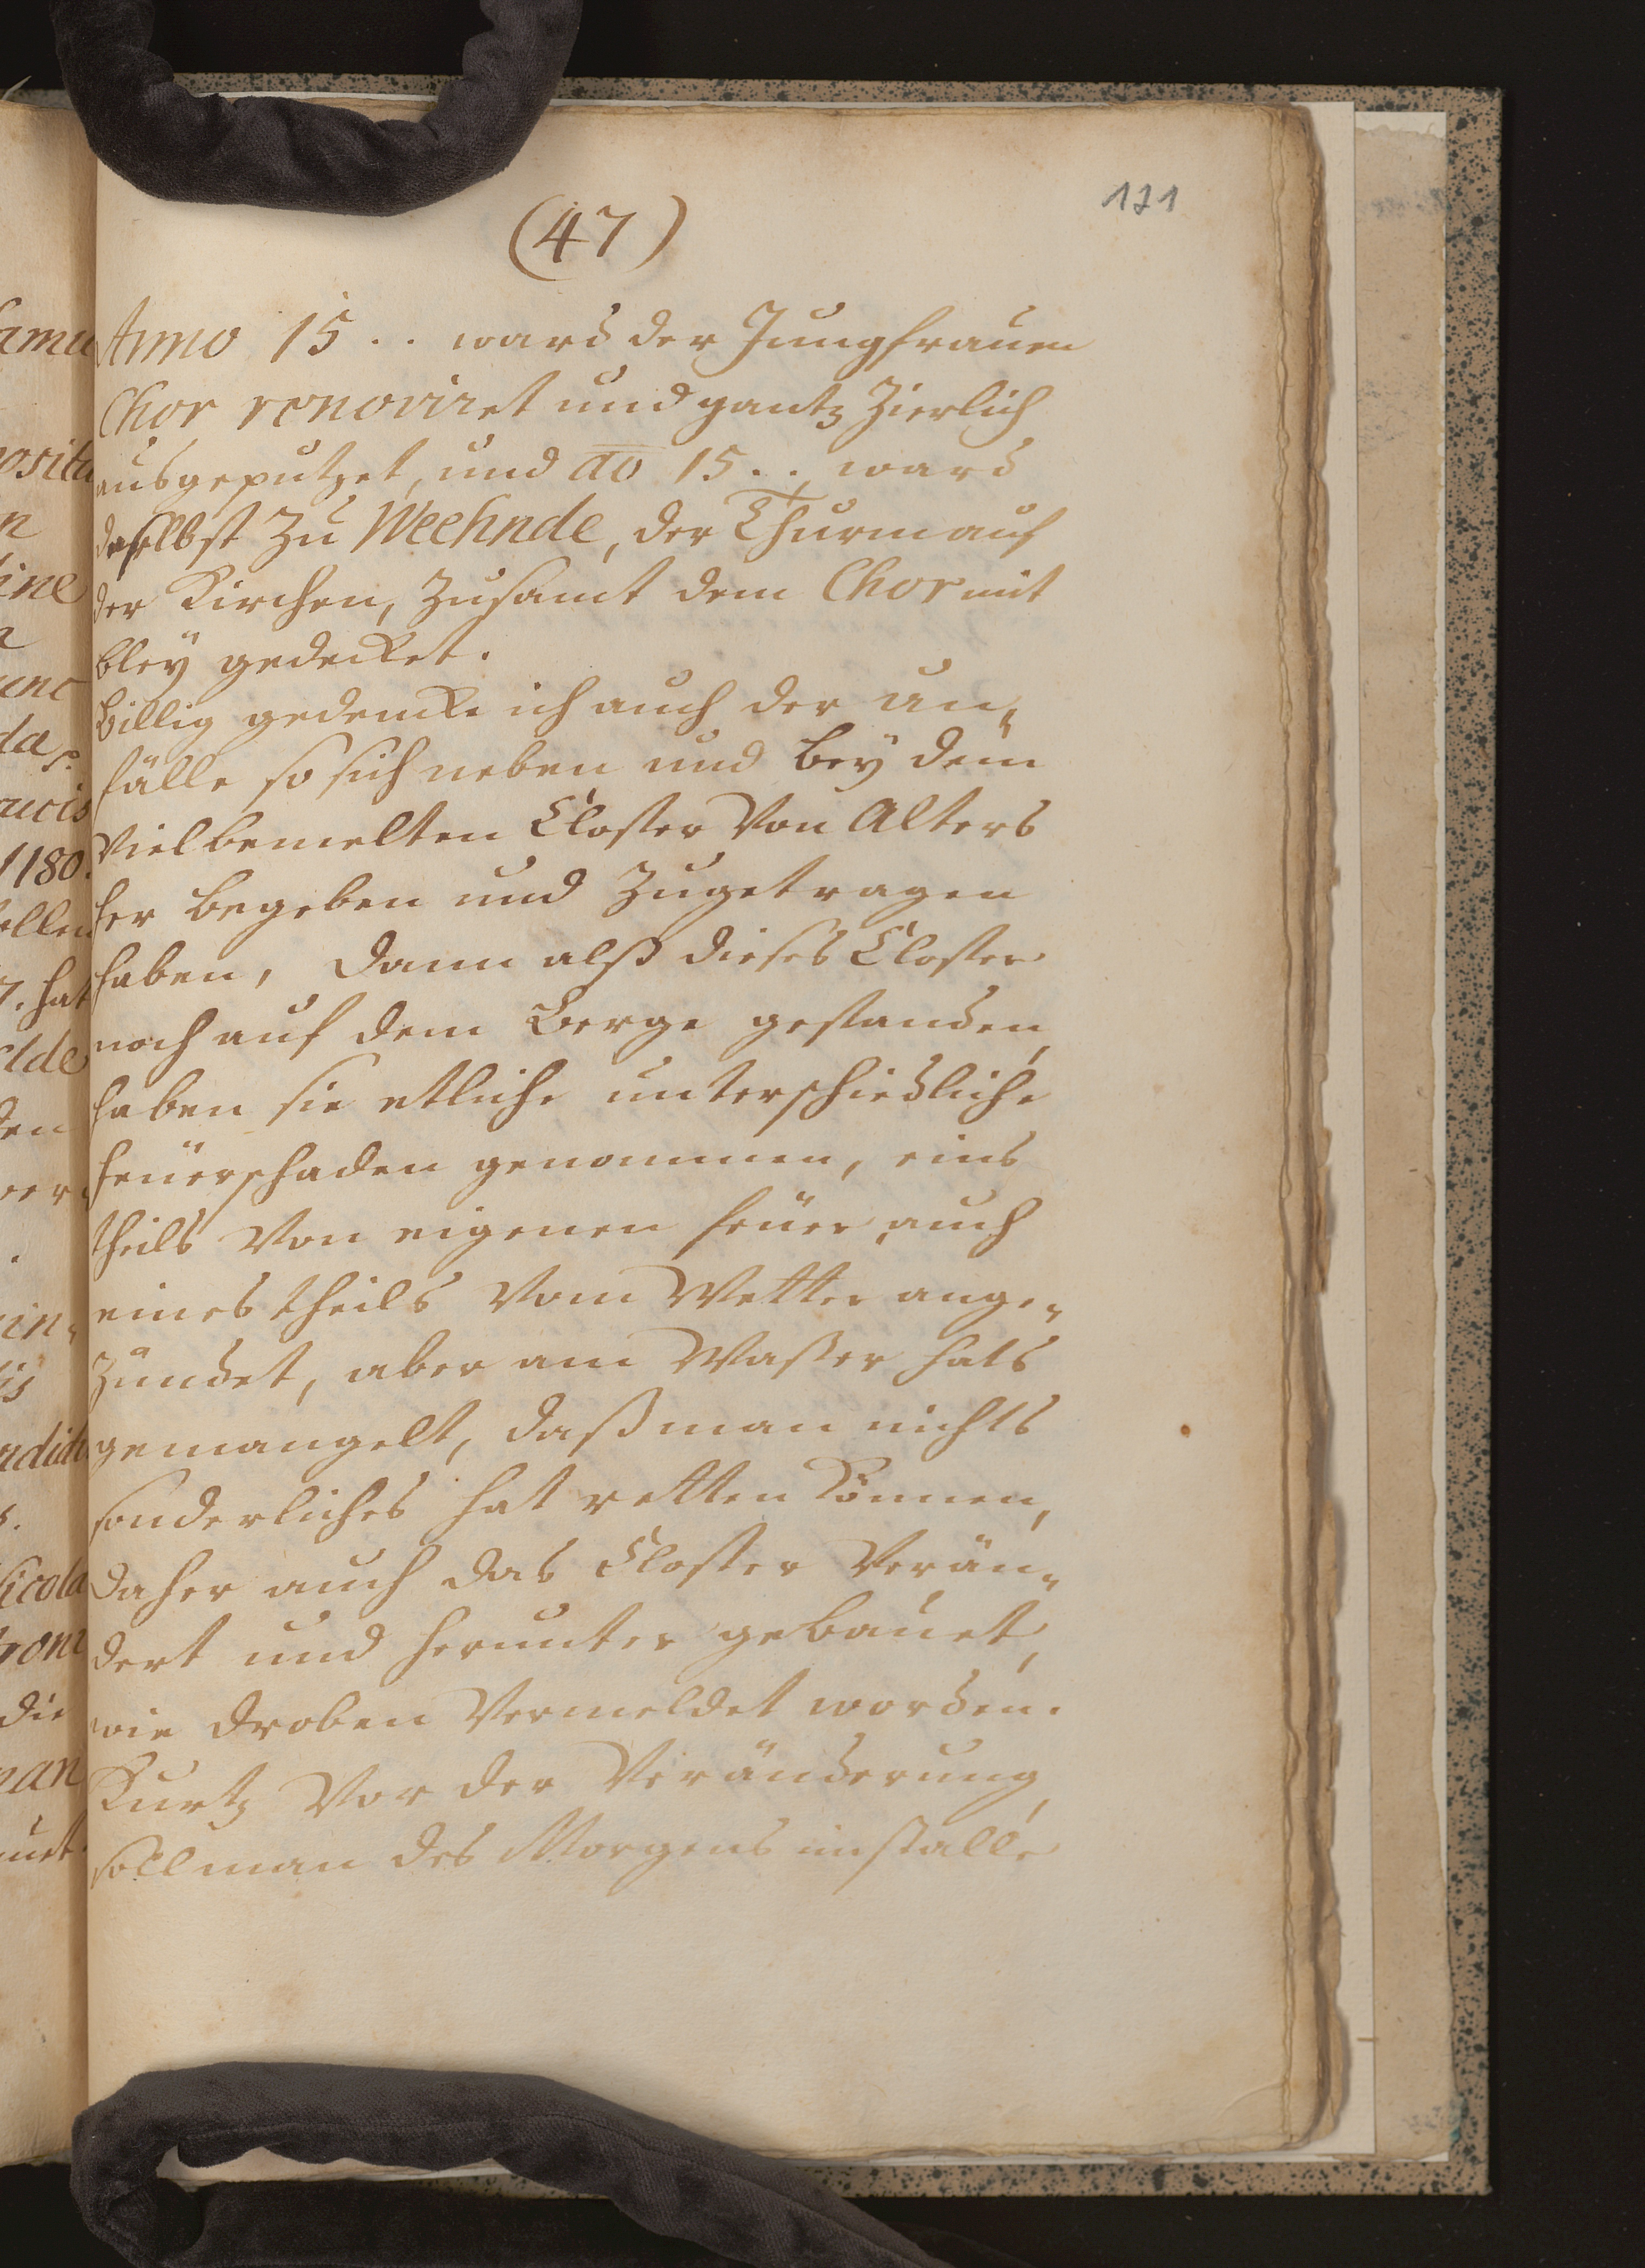 121
(47)
Anno 15 . . ward der Jungfrauen
Chor renoviret und gantz Zierlich
ausgeputzet, und ao 15 . ., ward
daselbst Zu Weehnde, der Thurm auf
der Kirchen, Zusamt dem Chor mit
bleÿ gedecket.
Billig gedencke ich auch der Un-
fälle so sich neben und beÿ dem
Vielbemelten Closter Von Alters
her begeben und Zugetragen
haben, dann alß dieses Closter
noch auf dem Berge gestanden,
haben sie etliche unterschiedliche
feüerschaden genommen, eins
theils Von eigenen feüer, auch
eines theils Vom Wetter ange-
Zündet, aber am Waßer hats
gemangelt, daß man nichts
sonderliches hat retten Können,
Daher auch das Closter Verän-
dert und herunter gebauet,
wie droben Vermeldet worden.
Kurtz Vor der Veränderung,
soll man des Morgens im stalle